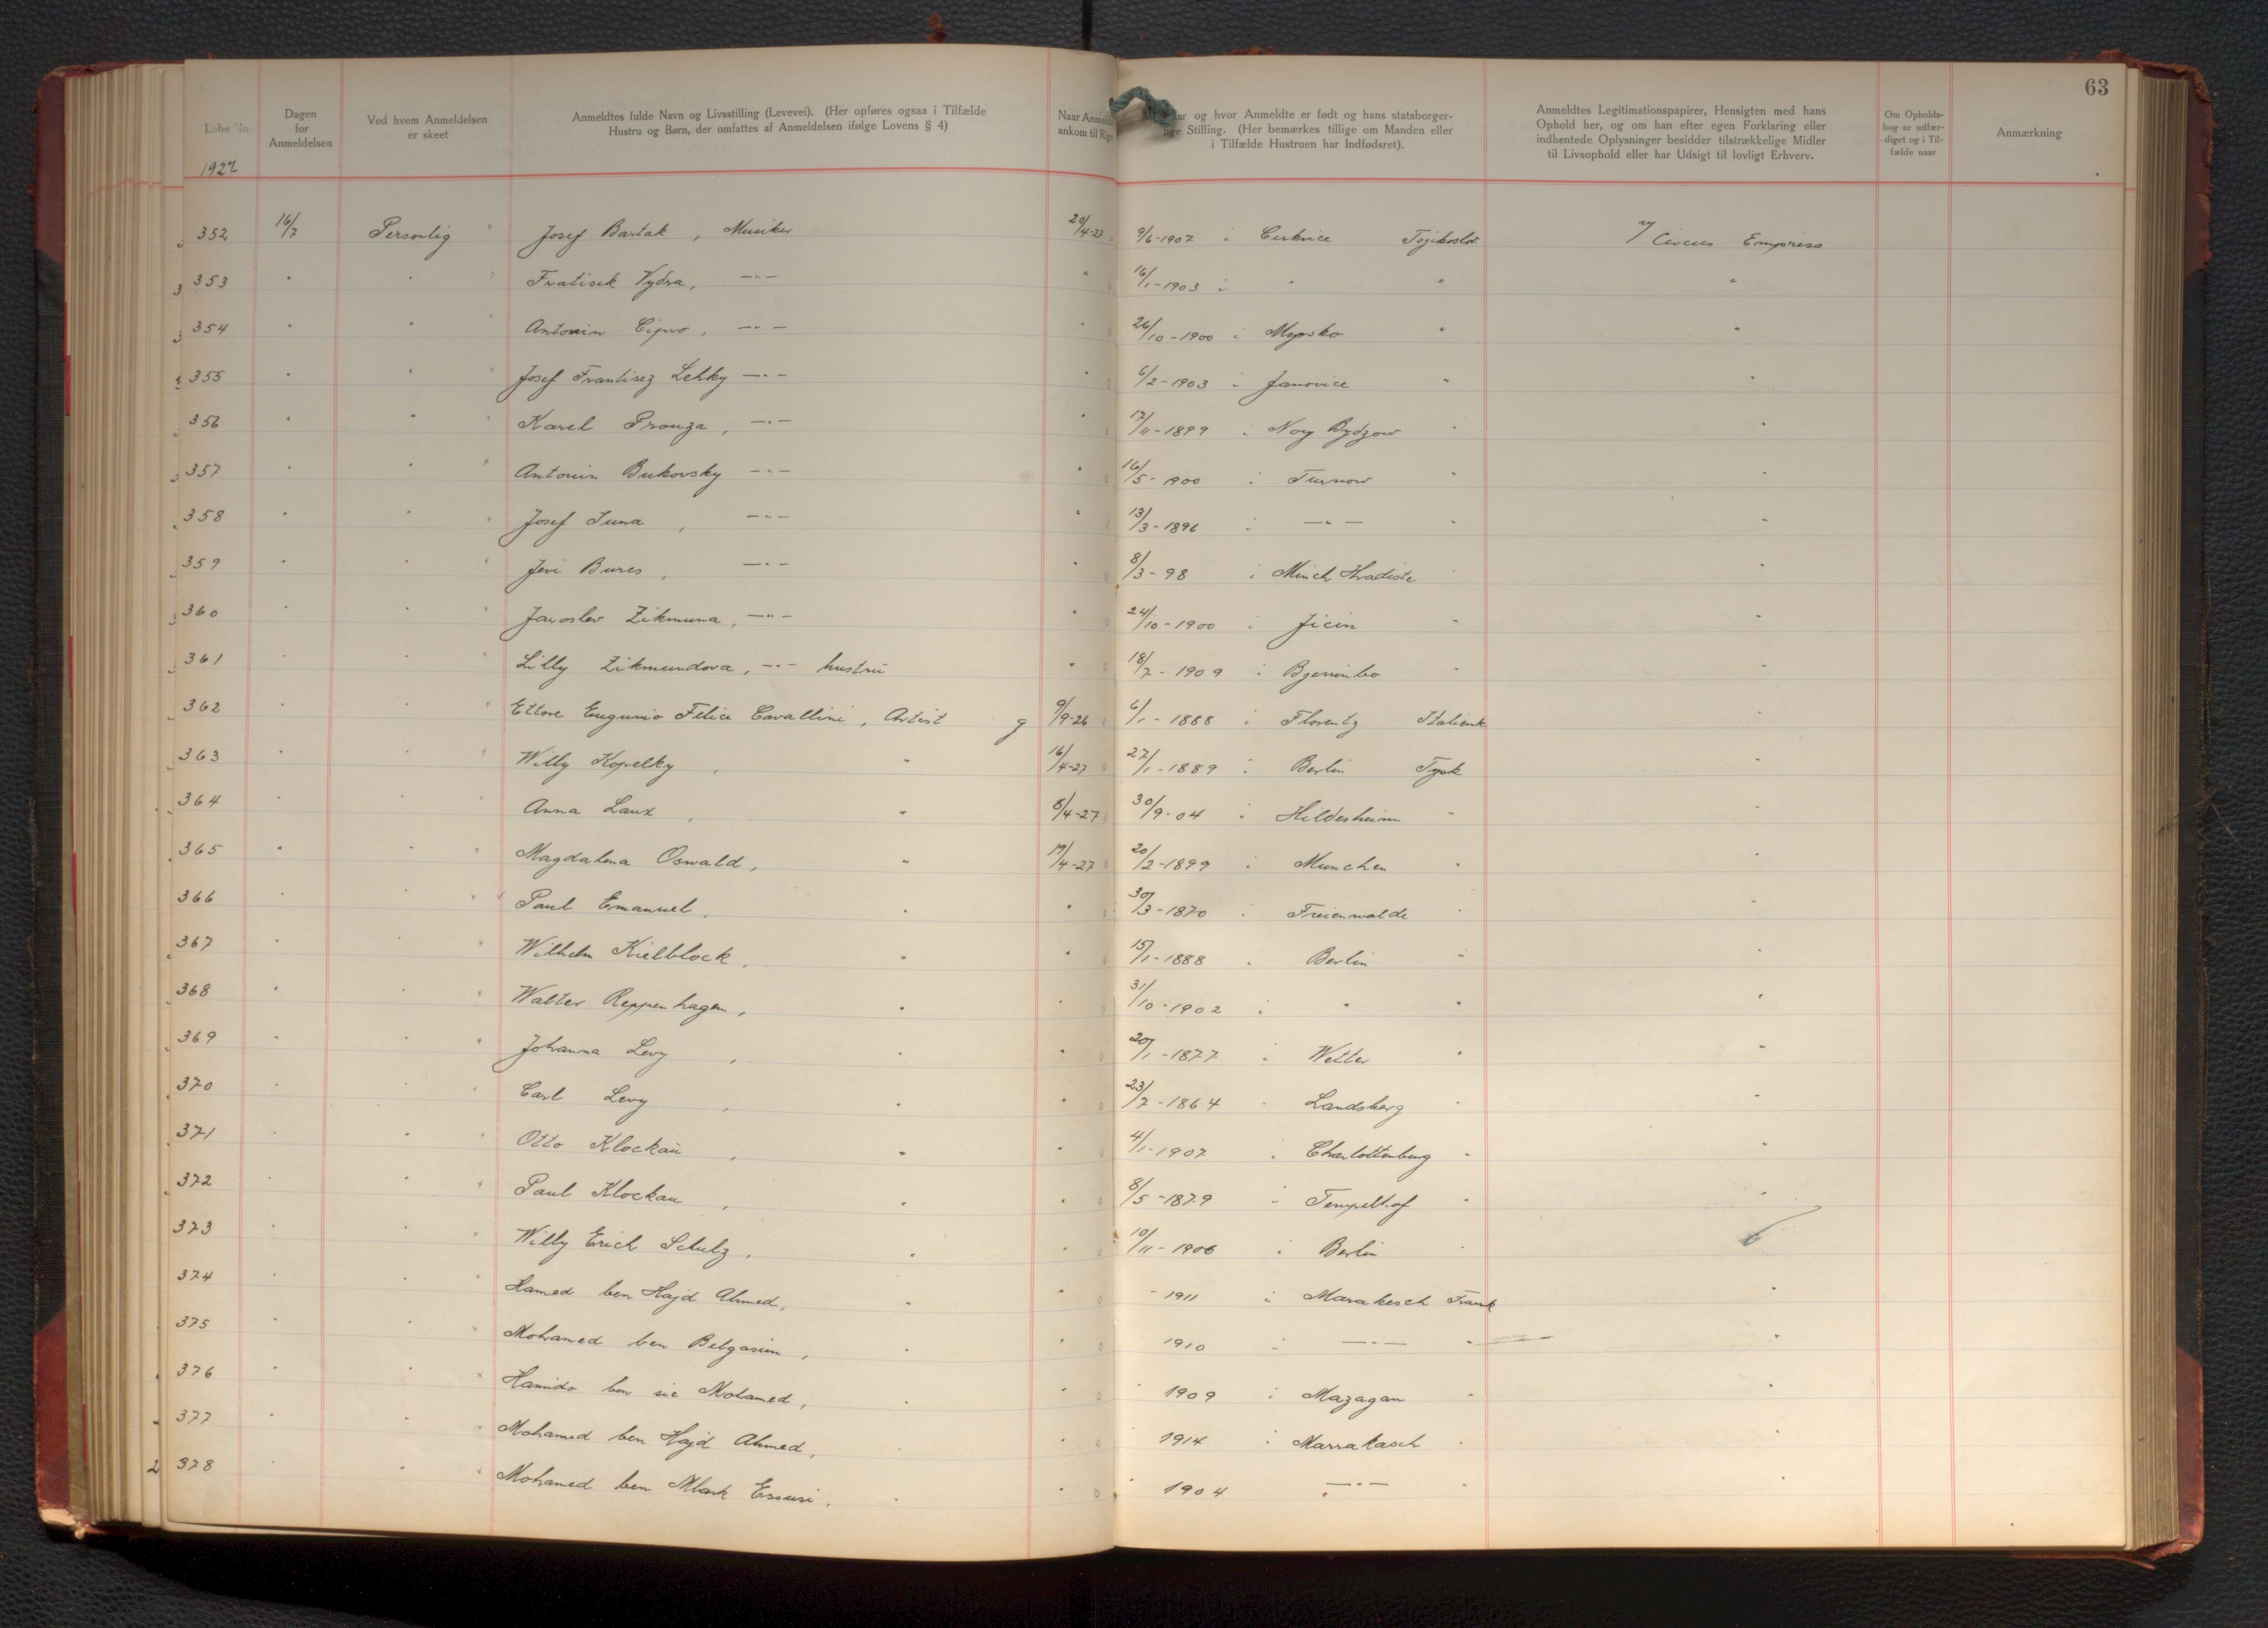 63
Løbe No
Dagen for Anmeldelsen
Ved hvem Anmeldelsen er skeet
Anmeldtes fulde Navn og Livsstilling (Levevei). (Her opføres ogsaa i Tilfælde Hustru og Børn, der omfattes af Anmeldelsen ifølge Lovens § 4)
Naar Anmeld ankom til Rig
og hvor Anmeldte er født og hans statsborgerlige Stilling. (Her bemærkes tillige om Manden eller i Tilfælde Hustruen har Indfødsret).
Anmeldtes Legitimationspapirer, Hensigten med hans Ophold her, og om han efter egen Forklaring eller indhentede Oplysninger besidder tilstrækkelige Midler til Livsophold eller har Udsigt til lovligt Erhverv.
Om Opholdsbog er udfærdiget og i Tilfælde naar
Anmærkning
1927
352 16/7 Personlig Josef Bartak, Musiker 20/4-27 9/6-1907 i Cerkvice Tjzikoslov. Circus Empress
353 " " Fratisek Vydra, —"— " 16/1-1903 i " " "
354 " " Antonin Cipro, —"— " 26/10-1900 i Myrsko " "
355 " " Josef Frantisez Lehky —"— " 6/2-1903 i Janovice " "
356 " " Karel Prouza, —"— " 17/11-1899 i Novy Bydzow " "
357 " " Antonin Bukovsky —"— " 16/5-1900 i Turnow " "
358 " " Josef Tuna, —"— " 13/3-1896 i —"— " "
359 " " Jeri Bures, —"— " 8/3-98 i Minch Hradiste " "
360 " " Jaroslev Zikmuna, —"— " 24/10-1900 i Jicin " "
361 " " Lilly Zikmundova, —"— hustru " 18/7-1909 i " "
362 " " Ettore Eugunio Felice Cavallini, Artist g 9/9-26 6/1-1888 i Florentz Italiensk "
363 " " Willy Kopelky, " 16/4-27 27/1-1889 i Berlin Tysk "
364 " " Anna Laux, " 8/4-27 30/9-04 i Hildesheim "
365 " " Magdalena Oswald, " 19/4-27 20/2-1899 i Munchen " "
366 " " Paul Emanuel, " " 30/3-1870 i Freienwalde " "
367 " " Wilhelm Kielblock, " " 15/1-1888 i Berlin " "
368 " " Walter Reppenhagen, " " 31/10-1902 i " " "
369 " " Johanna Levy, " " 20/1-1877 i Wetter " "
370 " " Carl Levy, " " 23/7-1864 " Landsberg "
371 " " Otto Klockau, " " 4/1-1907 i Charlottenburg " "
372 " " Paul Klockau, " " 8/5-1879 i Tempelhof " "
373 " " Willy Erich Schulz, " " 10/11-1906 i Berlin "
374 " " Hamed ben Hajd Ahmed, " " - 1911 i Marakesch Fransk "
375 " " Mohamed ben Belgasim, " " 1910 i —"— " "
376 " " Hamido ben sie Mohamed, " " " 1909 i Mazagan " "
377 " " Mohamed ben Hajd Ahmed, " " 1914 i Marrakasch " "
378 " " Mohamed ben Mbark Essusi, " " " 1904 —"— " "